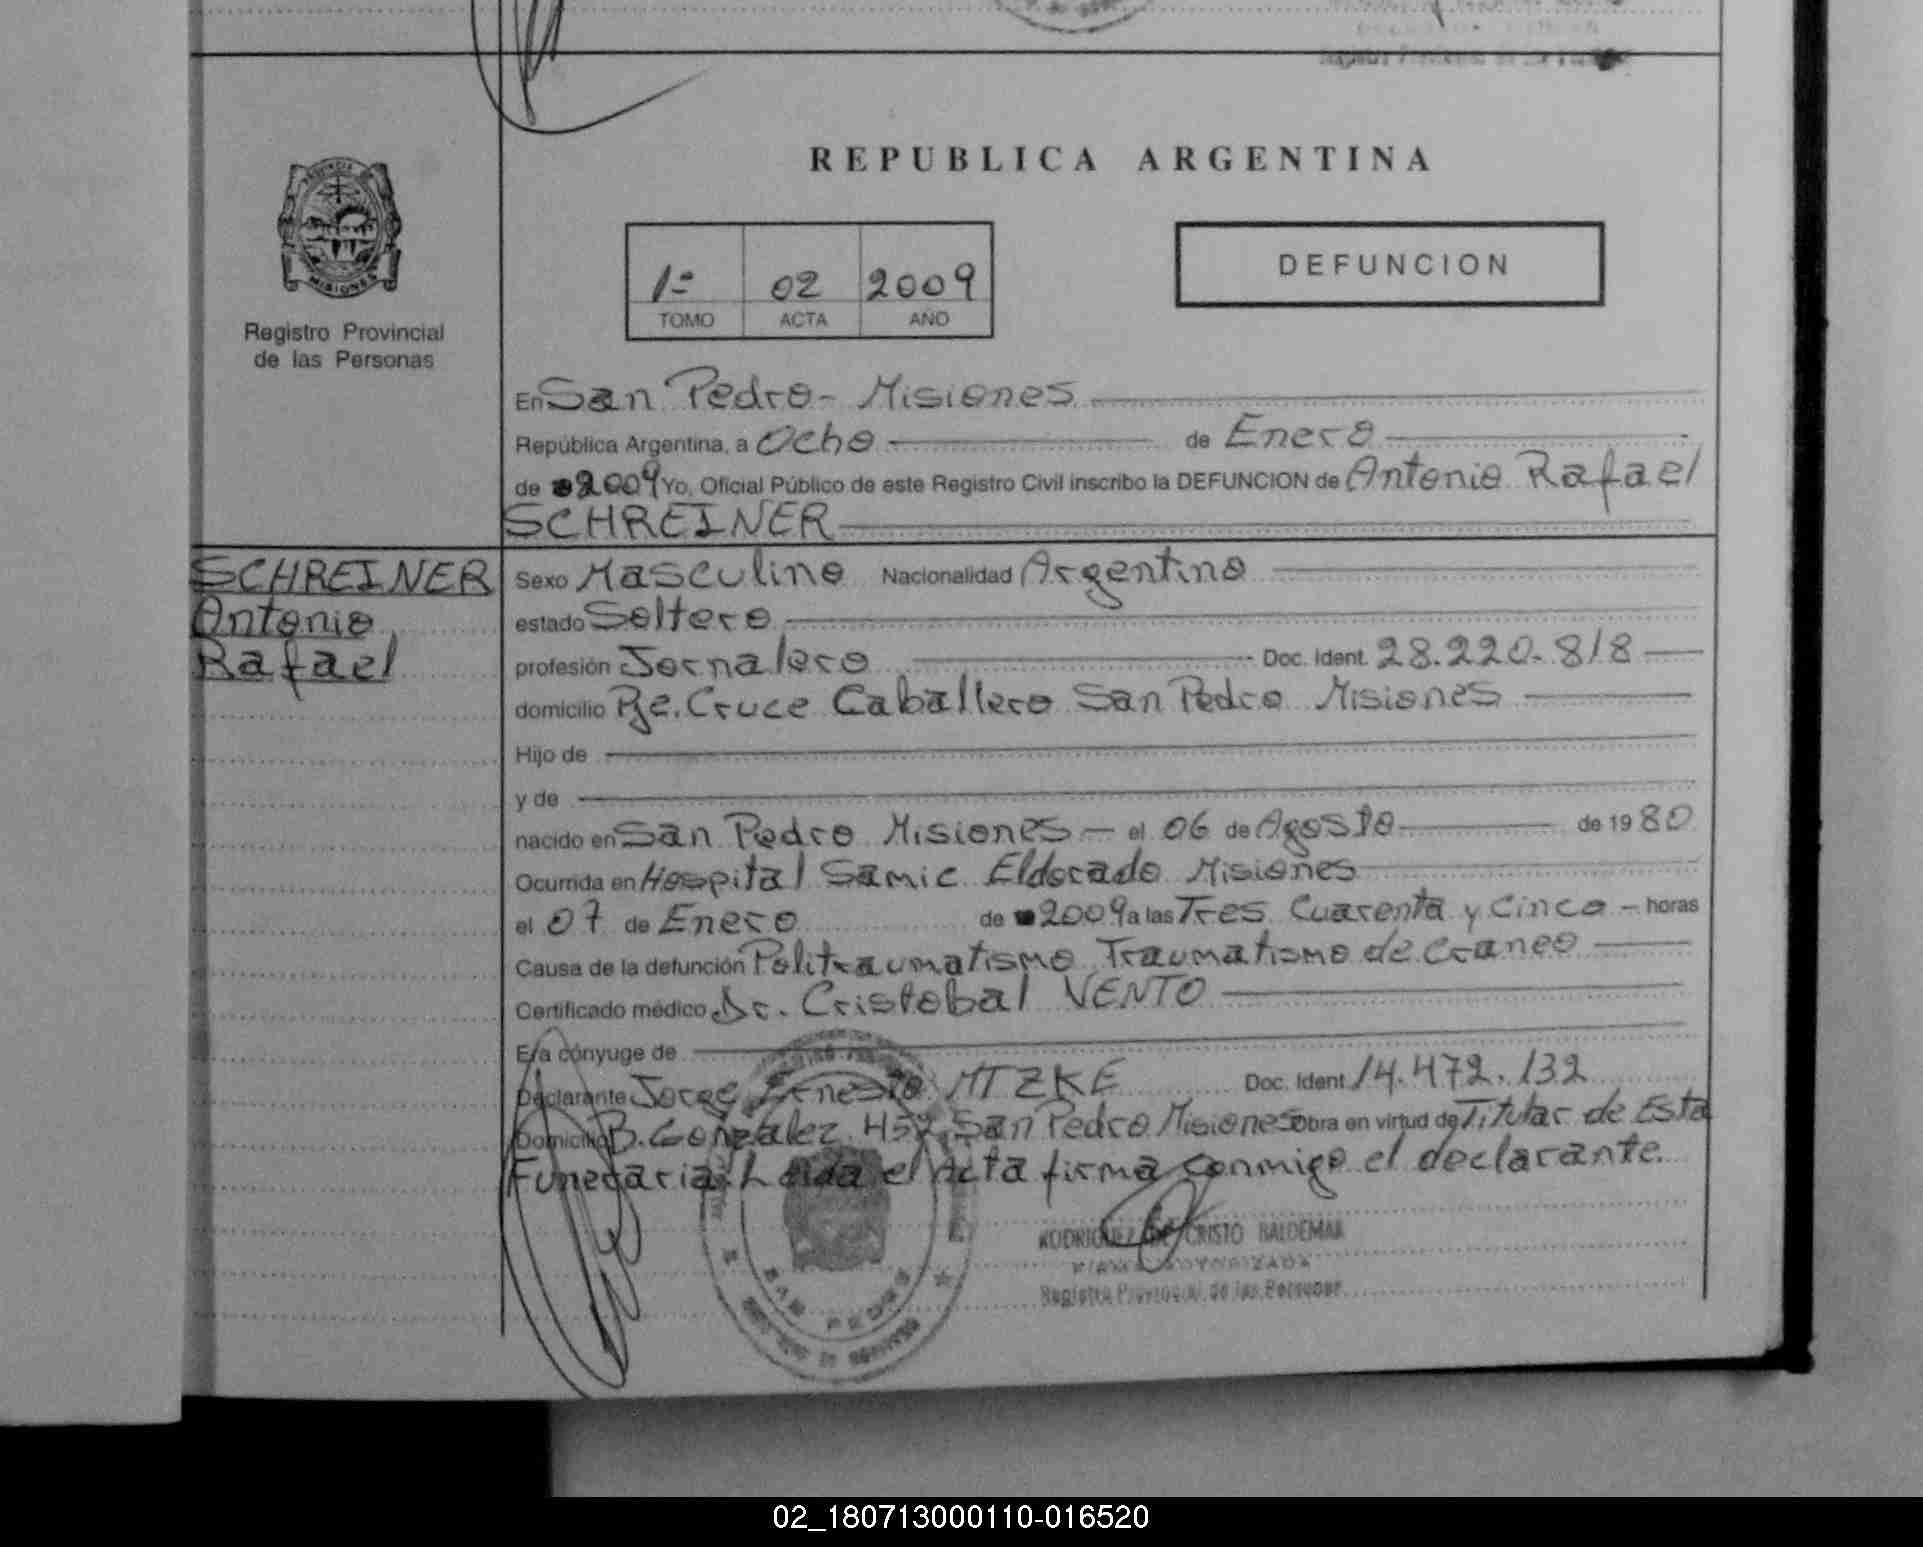 REPUBLICA ARGENTINA
PROVINCIA
MISIONES
Registro Provincial
de las Personas
1= 02 2009
TOMO ACTA AÑO
DEFUNCION
En San Pedro - Misiones
República Argentina, a Ocho de Enero
de 2009 Yo, Oficial Público de este Registro Civil inscribo la DEFUNCION de Antonio Rafael
SCHREINER
SCHREINER
Antonio
Rafael
Sexo Masculino Nacionalidad Argentino
estado Soltero
profesión Jornalero Doc. Ident. 28.220.818
domicilio Pje. Cruce Caballero San Pedro Misiones
Hijo de
y de
nacido en San Pedro Misiones el 06 de Agosto de 1980
Ocurrida en Hospital Samic Eldorado Misiones
el 07 de Enero de 2009 a las Tres Cuarenta y Cinco - horas
Causa de la defunción Politraumatismo Traumatismo de Craneo
Certificado médico Dr. Cristobal VENTO
Era cónyuge de
Declarante Jorge Ernesto MTZKE Doc. Ident. 14.472.132
Domicilio B. Gonzalez 457 San Pedro Misiones Obra en virtud de Titular de Esta
Funeraria. Leida el Acta firma conmigo el declarante.
RODRIGUEZ DE CRISTO BALDEMAR
FIRMA AUTORIZADA
Registro Provincial de las Personas
SAN PEDRO
02_180713000110-016520